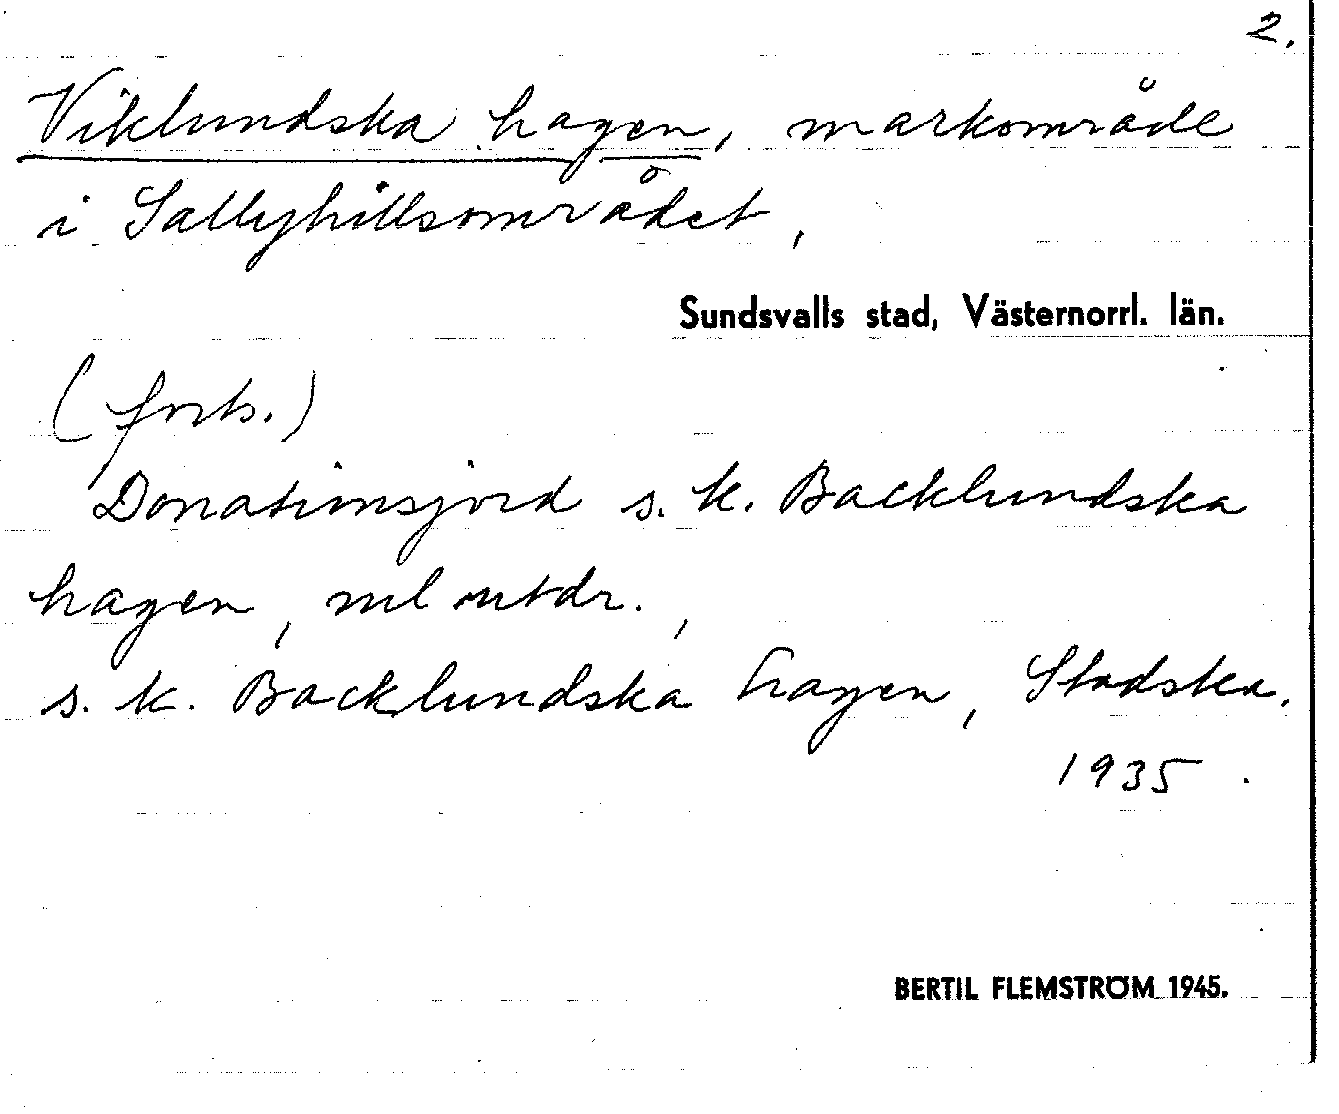 2.
Viklundska hagen, markområde
i Sallyhillsområdet,
Sundsvalls stad, Västernorrl. län.
(forts.)
Donationsjord s.k. Backlundska
hagen, utdr.,
s.k. Backlundska hagen, Stadska.
1935.
BERTIL FLEMSTRÖM 1945.